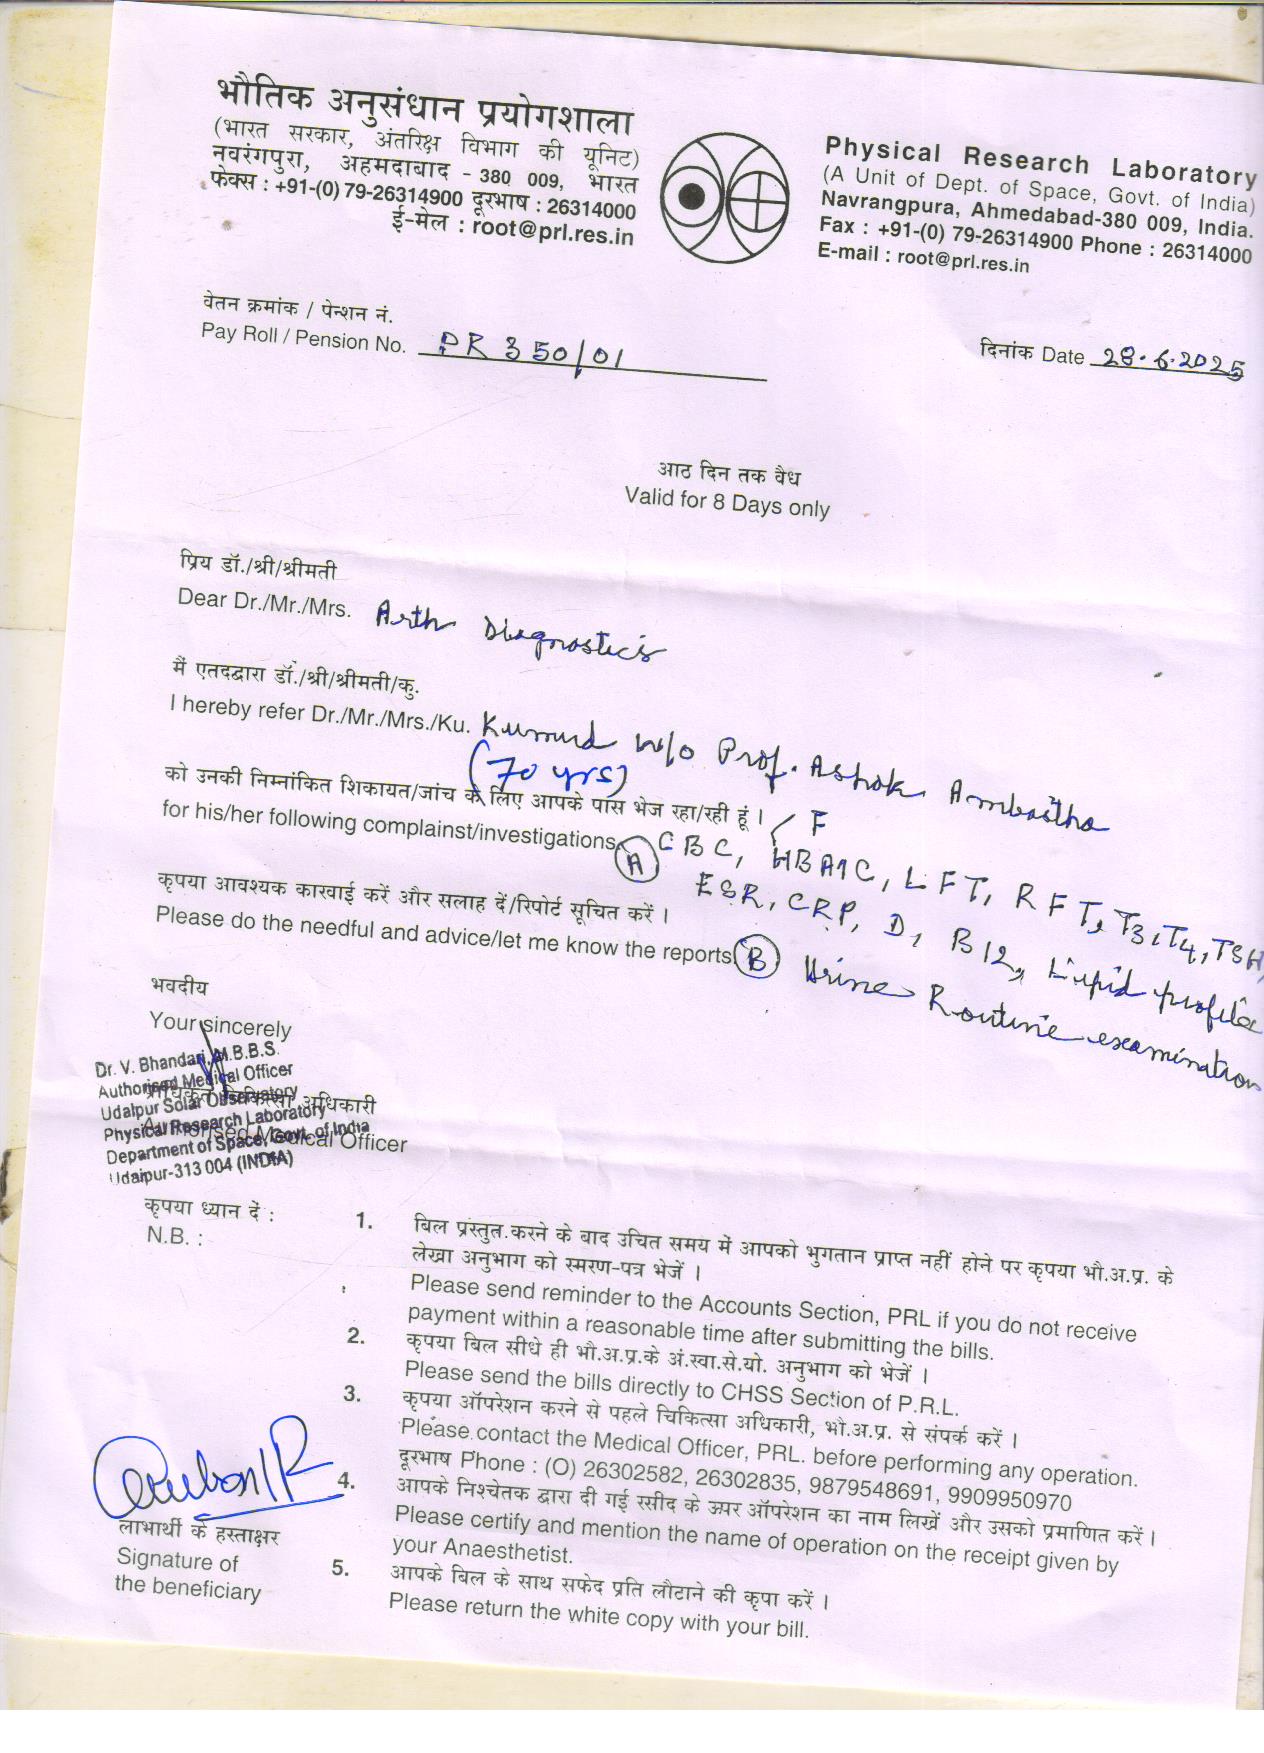 भौतिक अनुसंधान प्रयोगशाला
(भारत सरकार, अंतरिक्ष विभाग की यूनिट)
नवरंगपुरा, अहमदाबाद - 380 009, भारत
फेक्स : +91-(0) 79-26314900 दूरभाष : 26314000
ई-मेल : root@prl.res.in
Physical Research Laboratory
(A Unit of Dept. of Space, Govt. of India)
Navrangpura, Ahmedabad-380 009, India.
Fax : +91-(0) 79-26314900 Phone : 26314000
E-mail : root@prl.res.in
वेतन क्रमांक / पेन्शन नं.
Pay Roll / Pension No. PR 350/01
दिनांक Date 28.6.2025
आठ दिन तक वैध
Valid for 8 Days only
प्रिय डॉ./श्री/श्रीमती
Dear Dr./Mr./Mrs. Arth Diagnostics
मैं एतदद्वारा डॉ./श्री/श्रीमती/कु.
I hereby refer Dr./Mr./Mrs./Ku. Kumud w/o Prof. Ashok Ambastha
(70 yrs)
को उनकी निम्नांकित शिकायत/जांच के लिए आपके पास भेज रहा/रही हूं ।
for his/her following complainst/investigations
F
A CBC, HBA1C, LFT, RFT, T3, T4, TSH,
ESR, CRP, D, B12, Lipid profile
कृपया आवश्यक कारवाई करें और सलाह दें/रिपोर्ट सूचित करें ।
Please do the needful and advice/let me know the reports
B Urine Routine examination
भवदीय
Your sincerely
Dr. V. Bhandari, M.B.B.S.
Authorised Medical Officer
Udaipur Solar Observatory
Physical Research Laboratory
Department of Space, Govt. of India
Udaipur-313 004 (INDIA)
प्राधिकृत चिकित्सा अधिकारी
Authorised Medical Officer
कृपया ध्यान दें :
N.B. :
1. बिल प्रस्तुत.करने के बाद उचित समय में आपको भुगतान प्राप्त नहीं होने पर कृपया भौ.अ.प्र. के
लेखा अनुभाग को स्मरण-पत्र भेजें ।
Please send reminder to the Accounts Section, PRL if you do not receive
payment within a reasonable time after submitting the bills.
2. कृपया बिल सीधे ही भौ.अ.प्र.के अं.स्वा.से.यो. अनुभाग को भेजें ।
Please send the bills directly to CHSS Section of P.R.L.
3. कृपया ऑपरेशन करने से पहले चिकित्सा अधिकारी, भौ.अ.प्र. से संपर्क करें ।
Please contact the Medical Officer, PRL. before performing any operation.
दूरभाष Phone : (O) 26302582, 26302835, 9879548691, 9909950970
4. आपके निश्चेतक द्वारा दी गई रसीद के ऊपर ऑपरेशन का नाम लिखें और उसको प्रमाणित करें ।
Please certify and mention the name of operation on the receipt given by
your Anaesthetist.
5. आपके बिल के साथ सफेद प्रति लौटाने की कृपा करें ।
Please return the white copy with your bill.
लाभार्थी के हस्ताक्षर
Signature of
the beneficiary